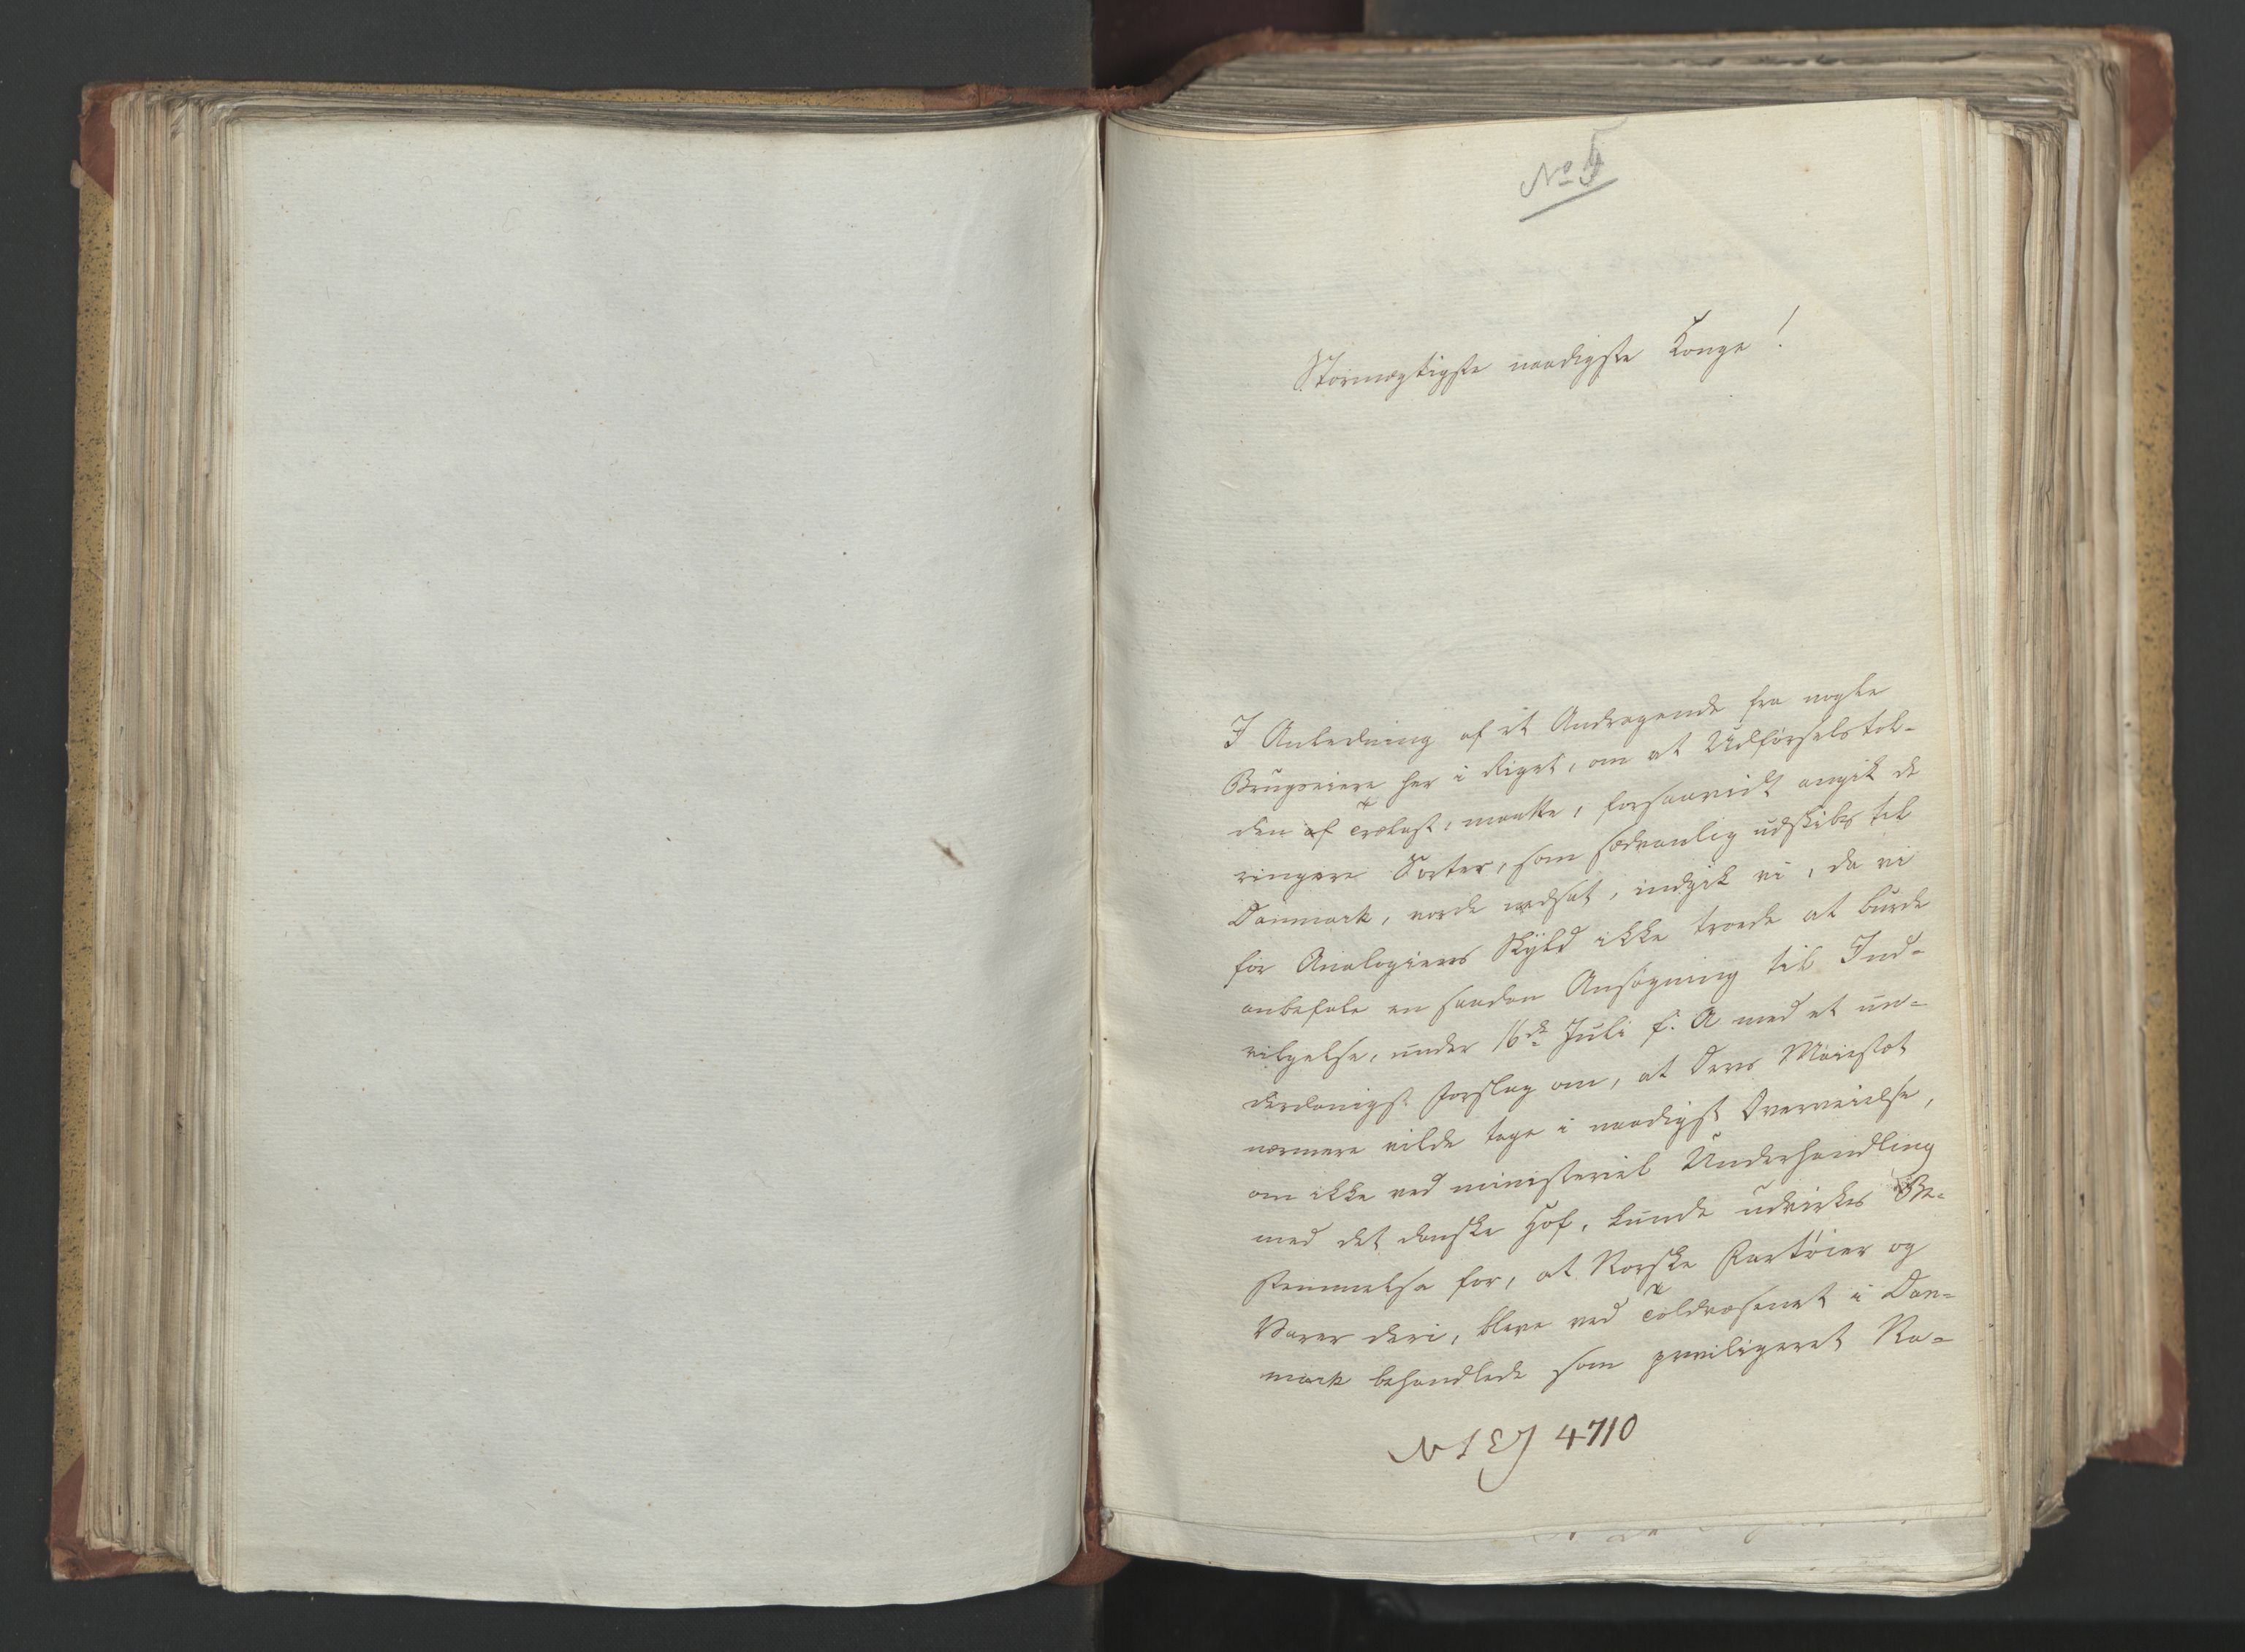 No 5
Stormægtigste naadigste Konge!
I Anledning af et Andragende fra nogle
Brugseiere her i Riget, om at Udførselstol-
den af Trælast, maatte, forsaavidt angik de
ringere Sorter, som sædvanlig udskibes til
Danmark, vorde nedsat, indgik vi, da vi
for Analogiens Skyld ikke troede at burde
anbefale en saadan Ansøgning til Ind-
vilgelse, under 16de Juli f. A med et un-
derdanigst Forslag om, at Deres Majestæt
nærmere vilde tage i naadigst Overveielse,
om ikke ved ministeriel Underhandling
med det danske Hof, kunde udvirkes Be-
stemmelse for, at Norske Fartøier og
Varer deri, bleve ved Toldvæsenet i Dan-
mark behandlede som priviligeret Na-
4710